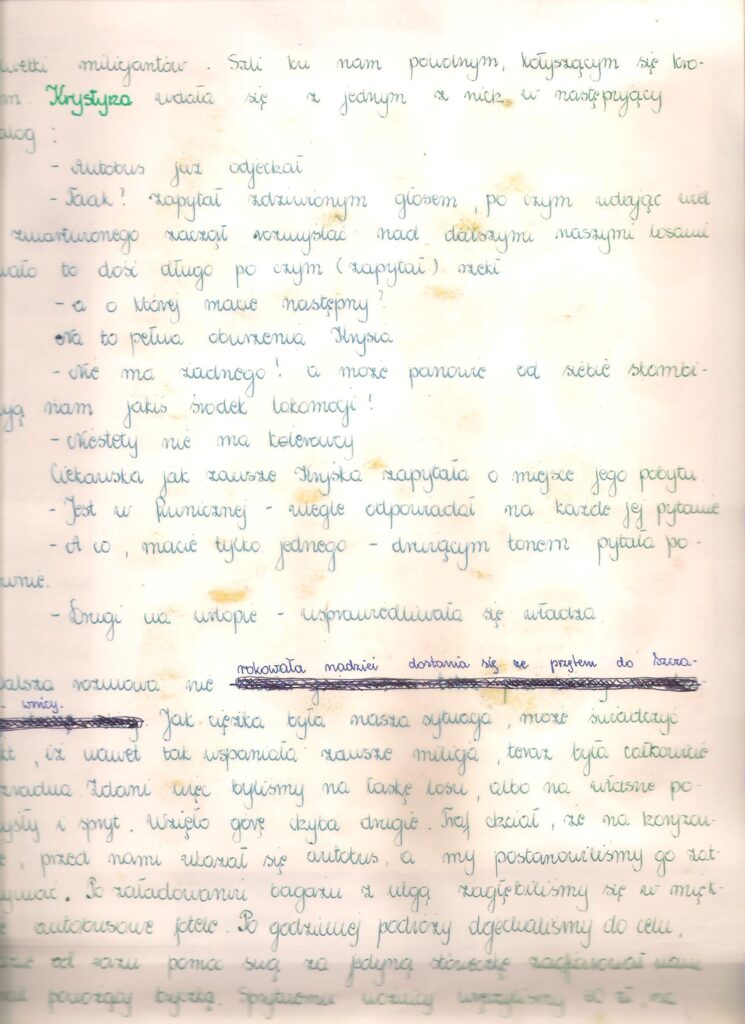 wetki milicjantów. Szli ku nam powolnym, kołyszącym się kro-
em. Krystyna wdała się z jednym z nich w następujący
alog :
- Autobus już odjechał
- Taak! zapytał zdziwionym głosem, po czym udając
zmartwionego zaczął rozmyślać nad dalszymi naszymi losami
wało to dość długo po czym (zapytał) rzekł
- a o której macie następny?
Na to pełna oburzenia Krysia
- Nie ma żadnego! a może panowie od siebie skombi-
ują nam jakiś środek lokomocji!
- Niestety nie ma kierowcy
Ciekawska jak zawsze Kryśka zapytała o miejsce jego pobytu.
- Jest w Piwnicznej - ulegle odpowiadał na każde jej pytanie
- A co, macie tylko jednego - drwiącym tonem pytała po-
wnie.
- Drugi na urlopie - usprawiedliwiała się władza
rokowała nadziei dostania się ze przętem do Szcza-
alsza rozmowa nie
wnicy.
Jak ciężka była nasza sytuacja, może świadczyć
kt, iż nawet tak wspaniała zawsze milicja, teraz była całkowicie
zradna. Zdani więc byliśmy na łaskę losu, albo na własne po-
ysły i spryt. Wzięło górę chyba drugie. Traf chciał, że na
e, przed nami ukazał się autobus, a my postanowiliśmy go zat-
ymać. Po załadowaniu bagażu z ulgą zagłębiliśmy się w mięk-
e autobusowe fotele. Po godzinnej podróży dojechaliśmy do celu,
dzie od razu pomoc swą za jedyną stóweczkę zaofiarował nam
powożący bryczką. Sprytnemu